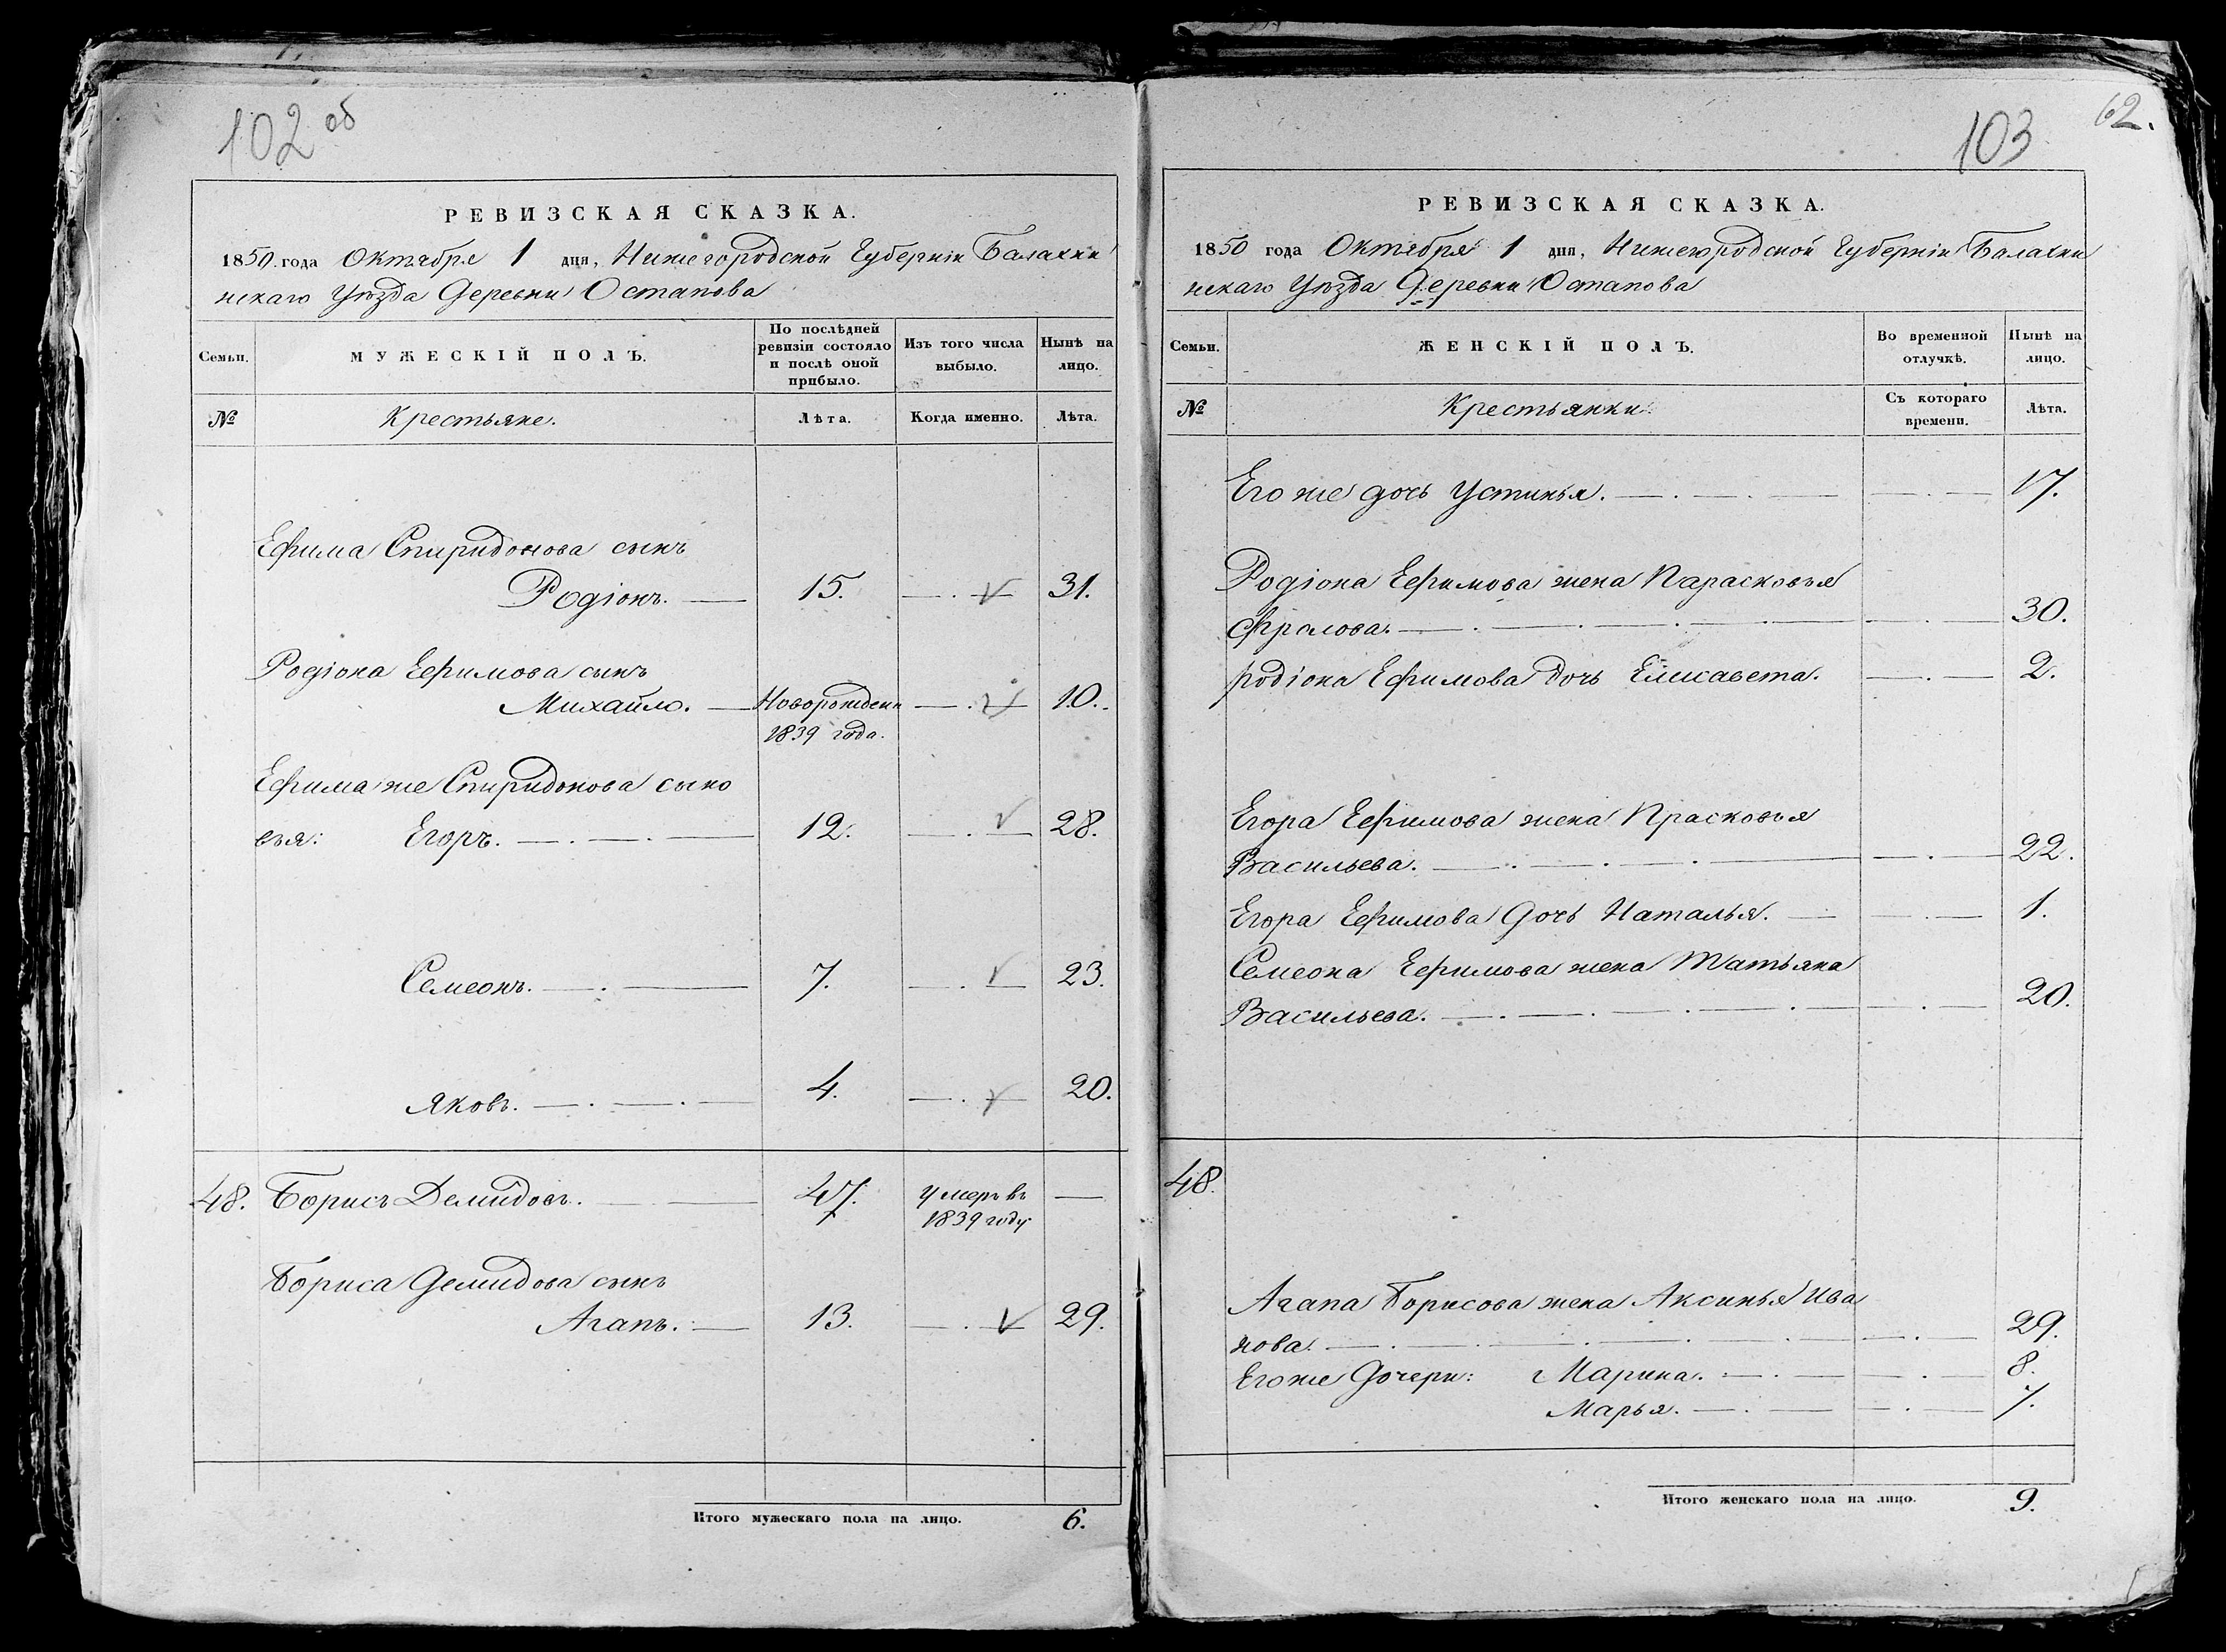 102 об
РЕВИЗСКАЯ СКАЗКА.
1850 года Октября 1 дня, Нижегородской Губерніи Балахни
нскаго Уѣзда Деревни Остапова
Семьи.
МУЖЕСКІЙ ПОЛЪ.
По послѣдней ревизіи состояло и послѣ оной прибыло.
Изъ того числа выбыло.
Нынѣ на лицо.
№ Крестьяне. Лѣта. Когда именно. Лѣта.
Ефима Спиридонова сынъ
Родіонъ. 15. 31.
Родіона Ефимова сынъ
Михайло. Новорожден 10.
1839 года.
Ефима же Спиридонова сыно
вья: Егоръ. 12. 28.
Семеонъ. 7. 23.
Яковъ. 4. 20.
48. Борисъ Демидовъ. 47. умеръ въ —
1839 году
Бориса Демидова сынъ
Агапъ. 13. 29.
Итого мужескаго пола на лицо. 6.
103 62.
РЕВИЗСКАЯ СКАЗКА.
1850 года Октября 1 дня, Нижегородской Губерніи Балахни
нскаго Уѣзда Деревни Остапова
Семьи.
ЖЕНСКІЙ ПОЛЪ.
Во временной отлучкѣ.
Нынѣ на лицо.
№ Крестьянки. Съ котораго времени. Лѣта.
Его же дочь Устинья. 17.
Родіона Ефимова жена Парасковья
Фролова. 30.
родіона Ефимова дочь Елисавета. 2.
Егора Ефимова жена Прасковья
Васильева. 22.
Егора Ефимова дочь Наталья. 1.
Семеона Ефимова жена Татьяна
Васильева. 20.
48.
Агапа Борисова жена Аксинья Ива
нова. 29.
Его же дочери: Марина. 8.
Марья. 7.
Итого женскаго пола на лицо. 9.